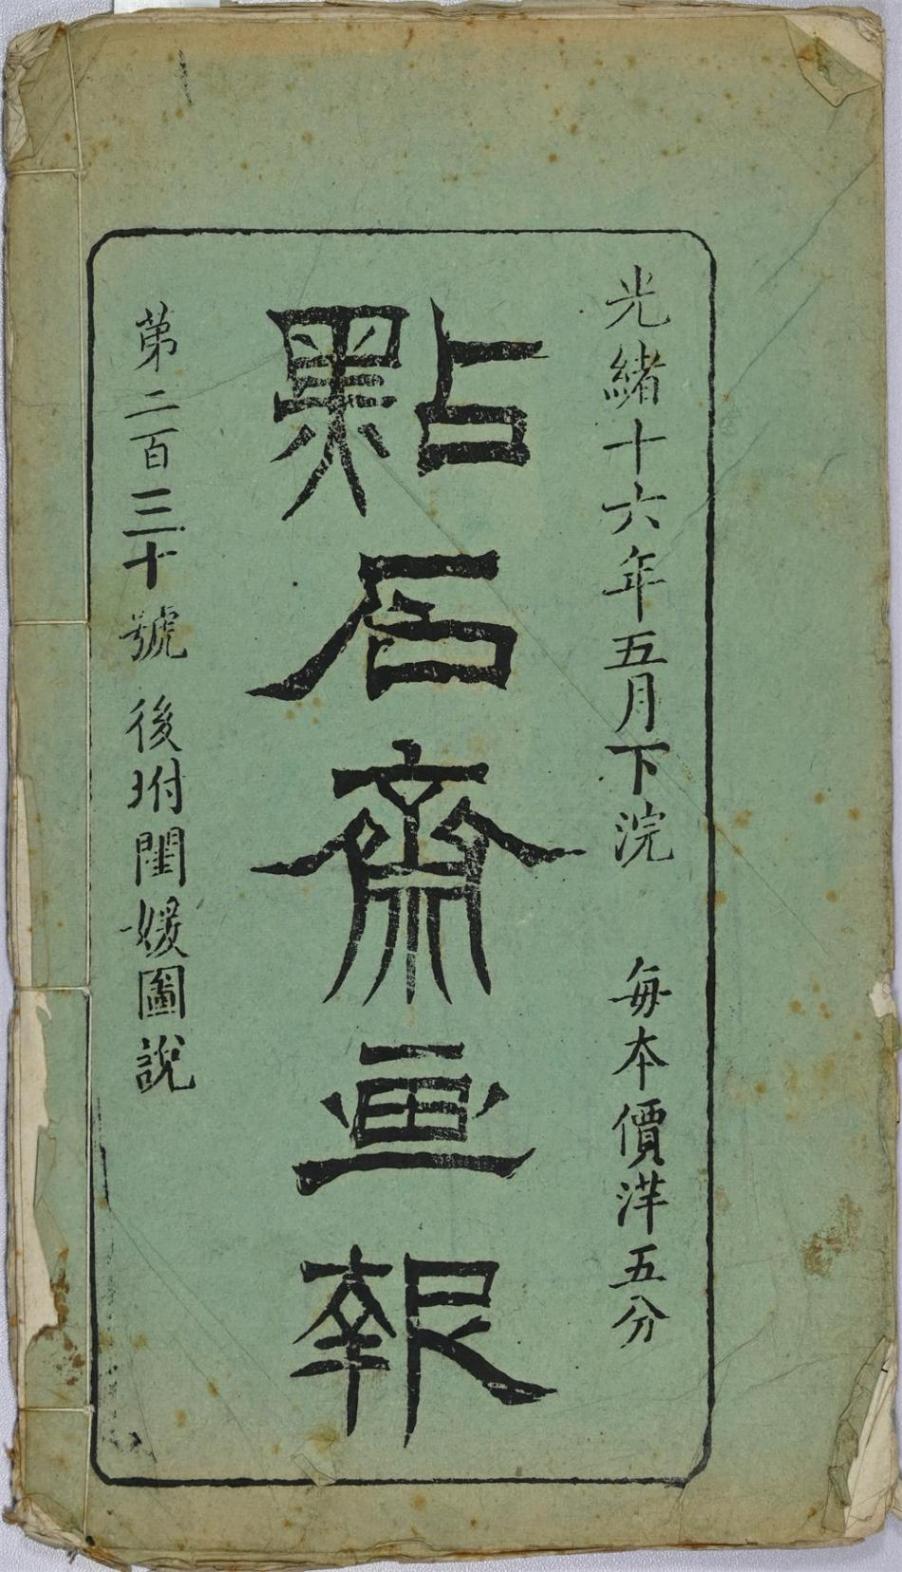 光緒十六年五月下浣 每本價洋五分
點石齋畫報
第二百三十號 後坿閨媛圖說